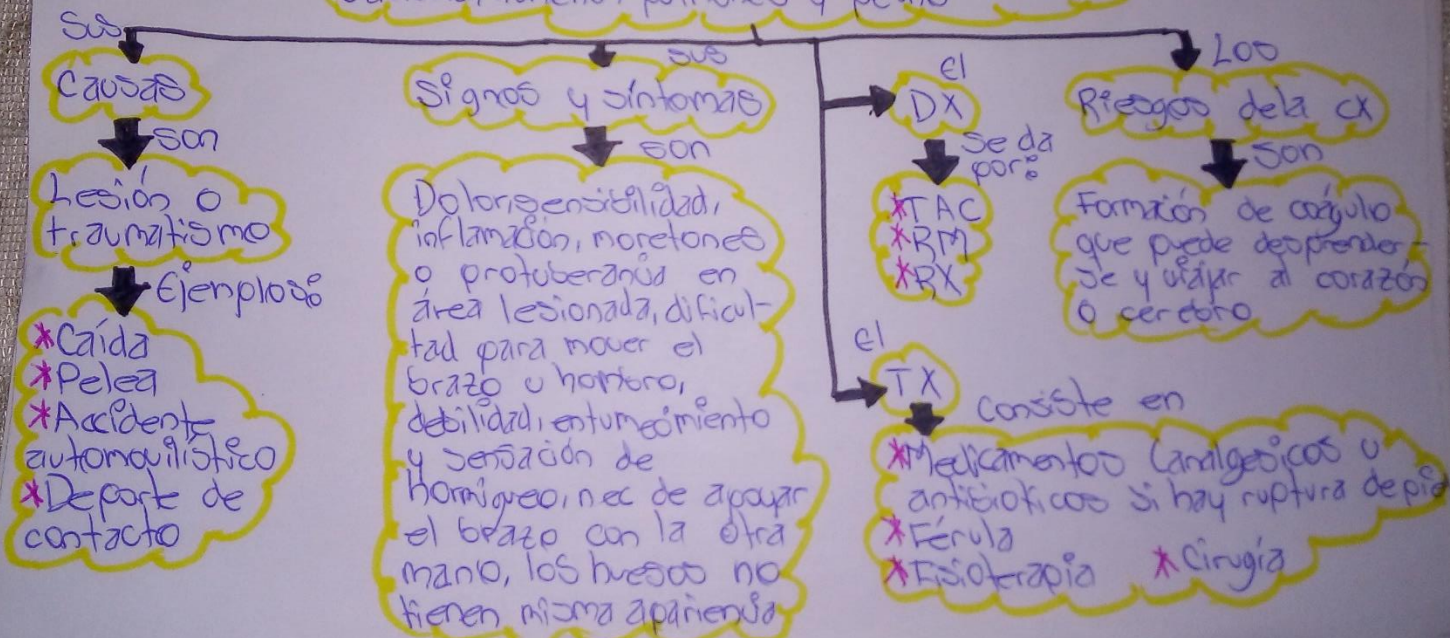 pulmones y
sus
Causas
son
Lesión o
traumatismo
Ejemplos:
*Caída
*Pelea
*Accidente
automovilístico
*Deporte de
contacto
sus
Signos y síntomas
son
Dolor, sensibilidad,
inflamación, moretones
o protuberancia en
área lesionada, dificul-
tad para mover el
brazo u hombro,
debilidad, entumecimiento
y sensación de
hormigueo, nec de apoyar
el brazo con la otra
mano, los huesos no
tienen misma apariencia
El
DX
se da
por:
*TAC
*RM
*RX
El
TX
consiste en
*Medicamentos (analgesicos u
antibioticos si hay ruptura de piel
*Férula
*Fisioterapia *Cirugía
Los
Riesgos dela cx
son
Formación de coágulo
que puede desprender-
se y viajar al corazón
o cerebro